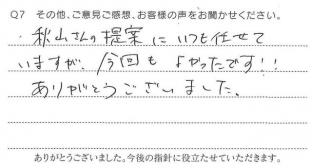 Q7 その他、ご意見ご感想、お客様の声をお聞かせください。
・秋山さんの提案にいつも任せて
いますが、今回もよかったです!!
ありがとうございました。
ありがとうございました。今後の指針に役立たせていただきます。